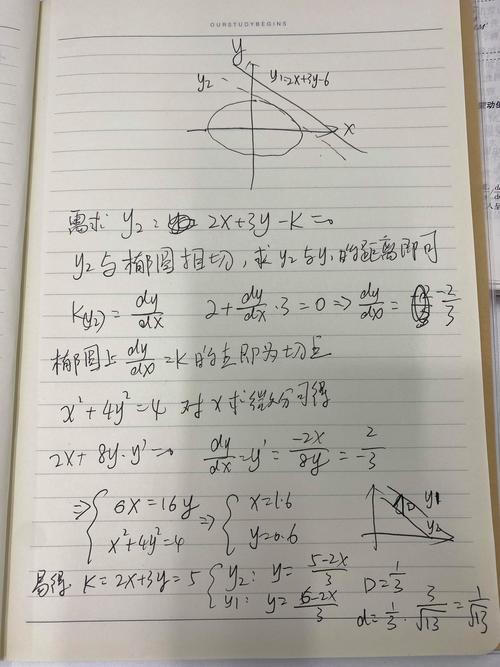 OURSTUDYBEGINS
y
y₂ y₁=2x+3y-6
x
需求 y₂: 2x+3y-K=0
y₂与椭圆相切,求y₂与y₁的距离即可
K(y₂)=dy/dx 2+dy/dx·3=0⇒dy/dx=-2/3
椭圆上dy/dx=K的点即为切点
x²+4y²=4 对x求微分可得
2x+8y·y'=0 dy/dx=y'=-2x/8y=2/-3
⇒{6x=16y x²+4y²=4 ⇒{x=1.6 y=0.6
D y₁
y₂
易得 K=2x+3y=5 {y₂: y=5-2x/3 D=1/3
y₁: y=6-2x/3 d=1/3·3/√13=1/√13